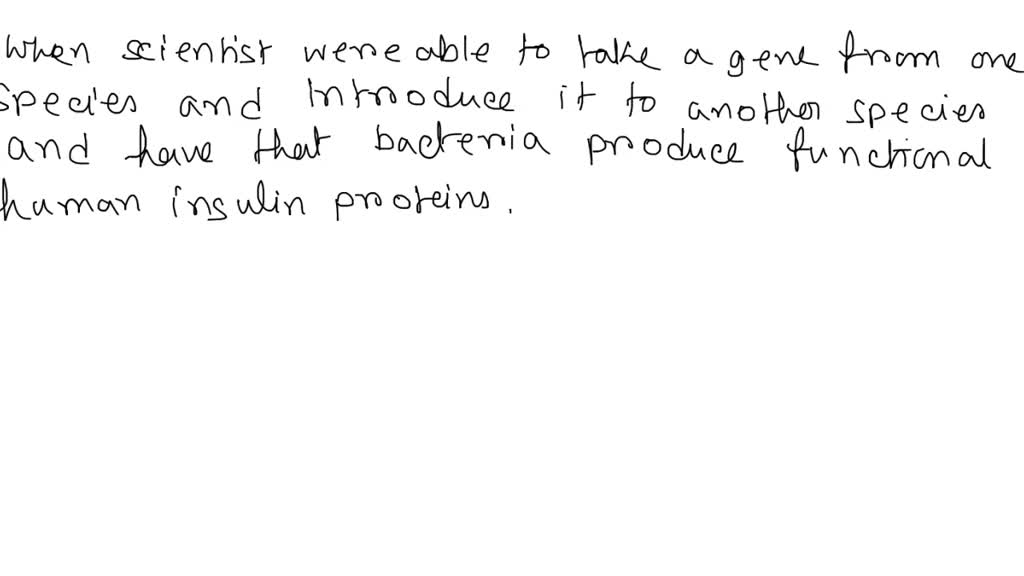 When scientist were able to take a gene from one
species and Introduce it to another species
and have that bacteria produce functional
human insulin proteins.